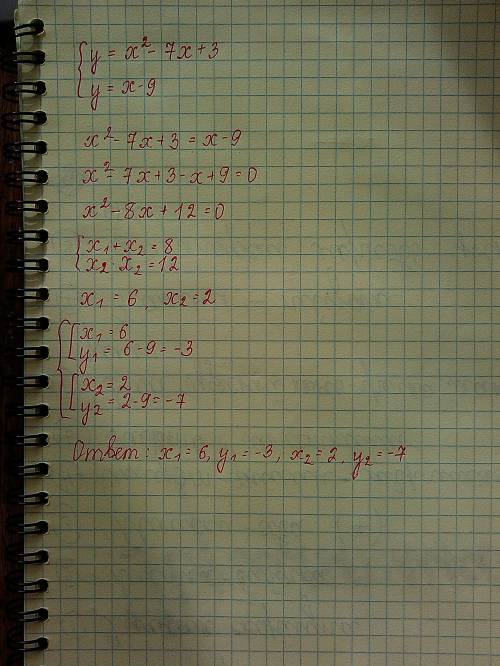 y = x² - 7x + 3
y = x - 9
x² - 7x + 3 = x - 9
x² - 7x + 3 - x + 9 = 0
x² - 8x + 12 = 0
x₁ + x₂ = 8
x₂ · x₂ = 12
x₁ = 6, x₂ = 2
x₁ = 6
y₁ = 6 - 9 = -3
x₂ = 2
y₂ = 2 - 9 = -7
Ответ: x₁ = 6, y₁ = -3, x₂ = 2, y₂ = -7